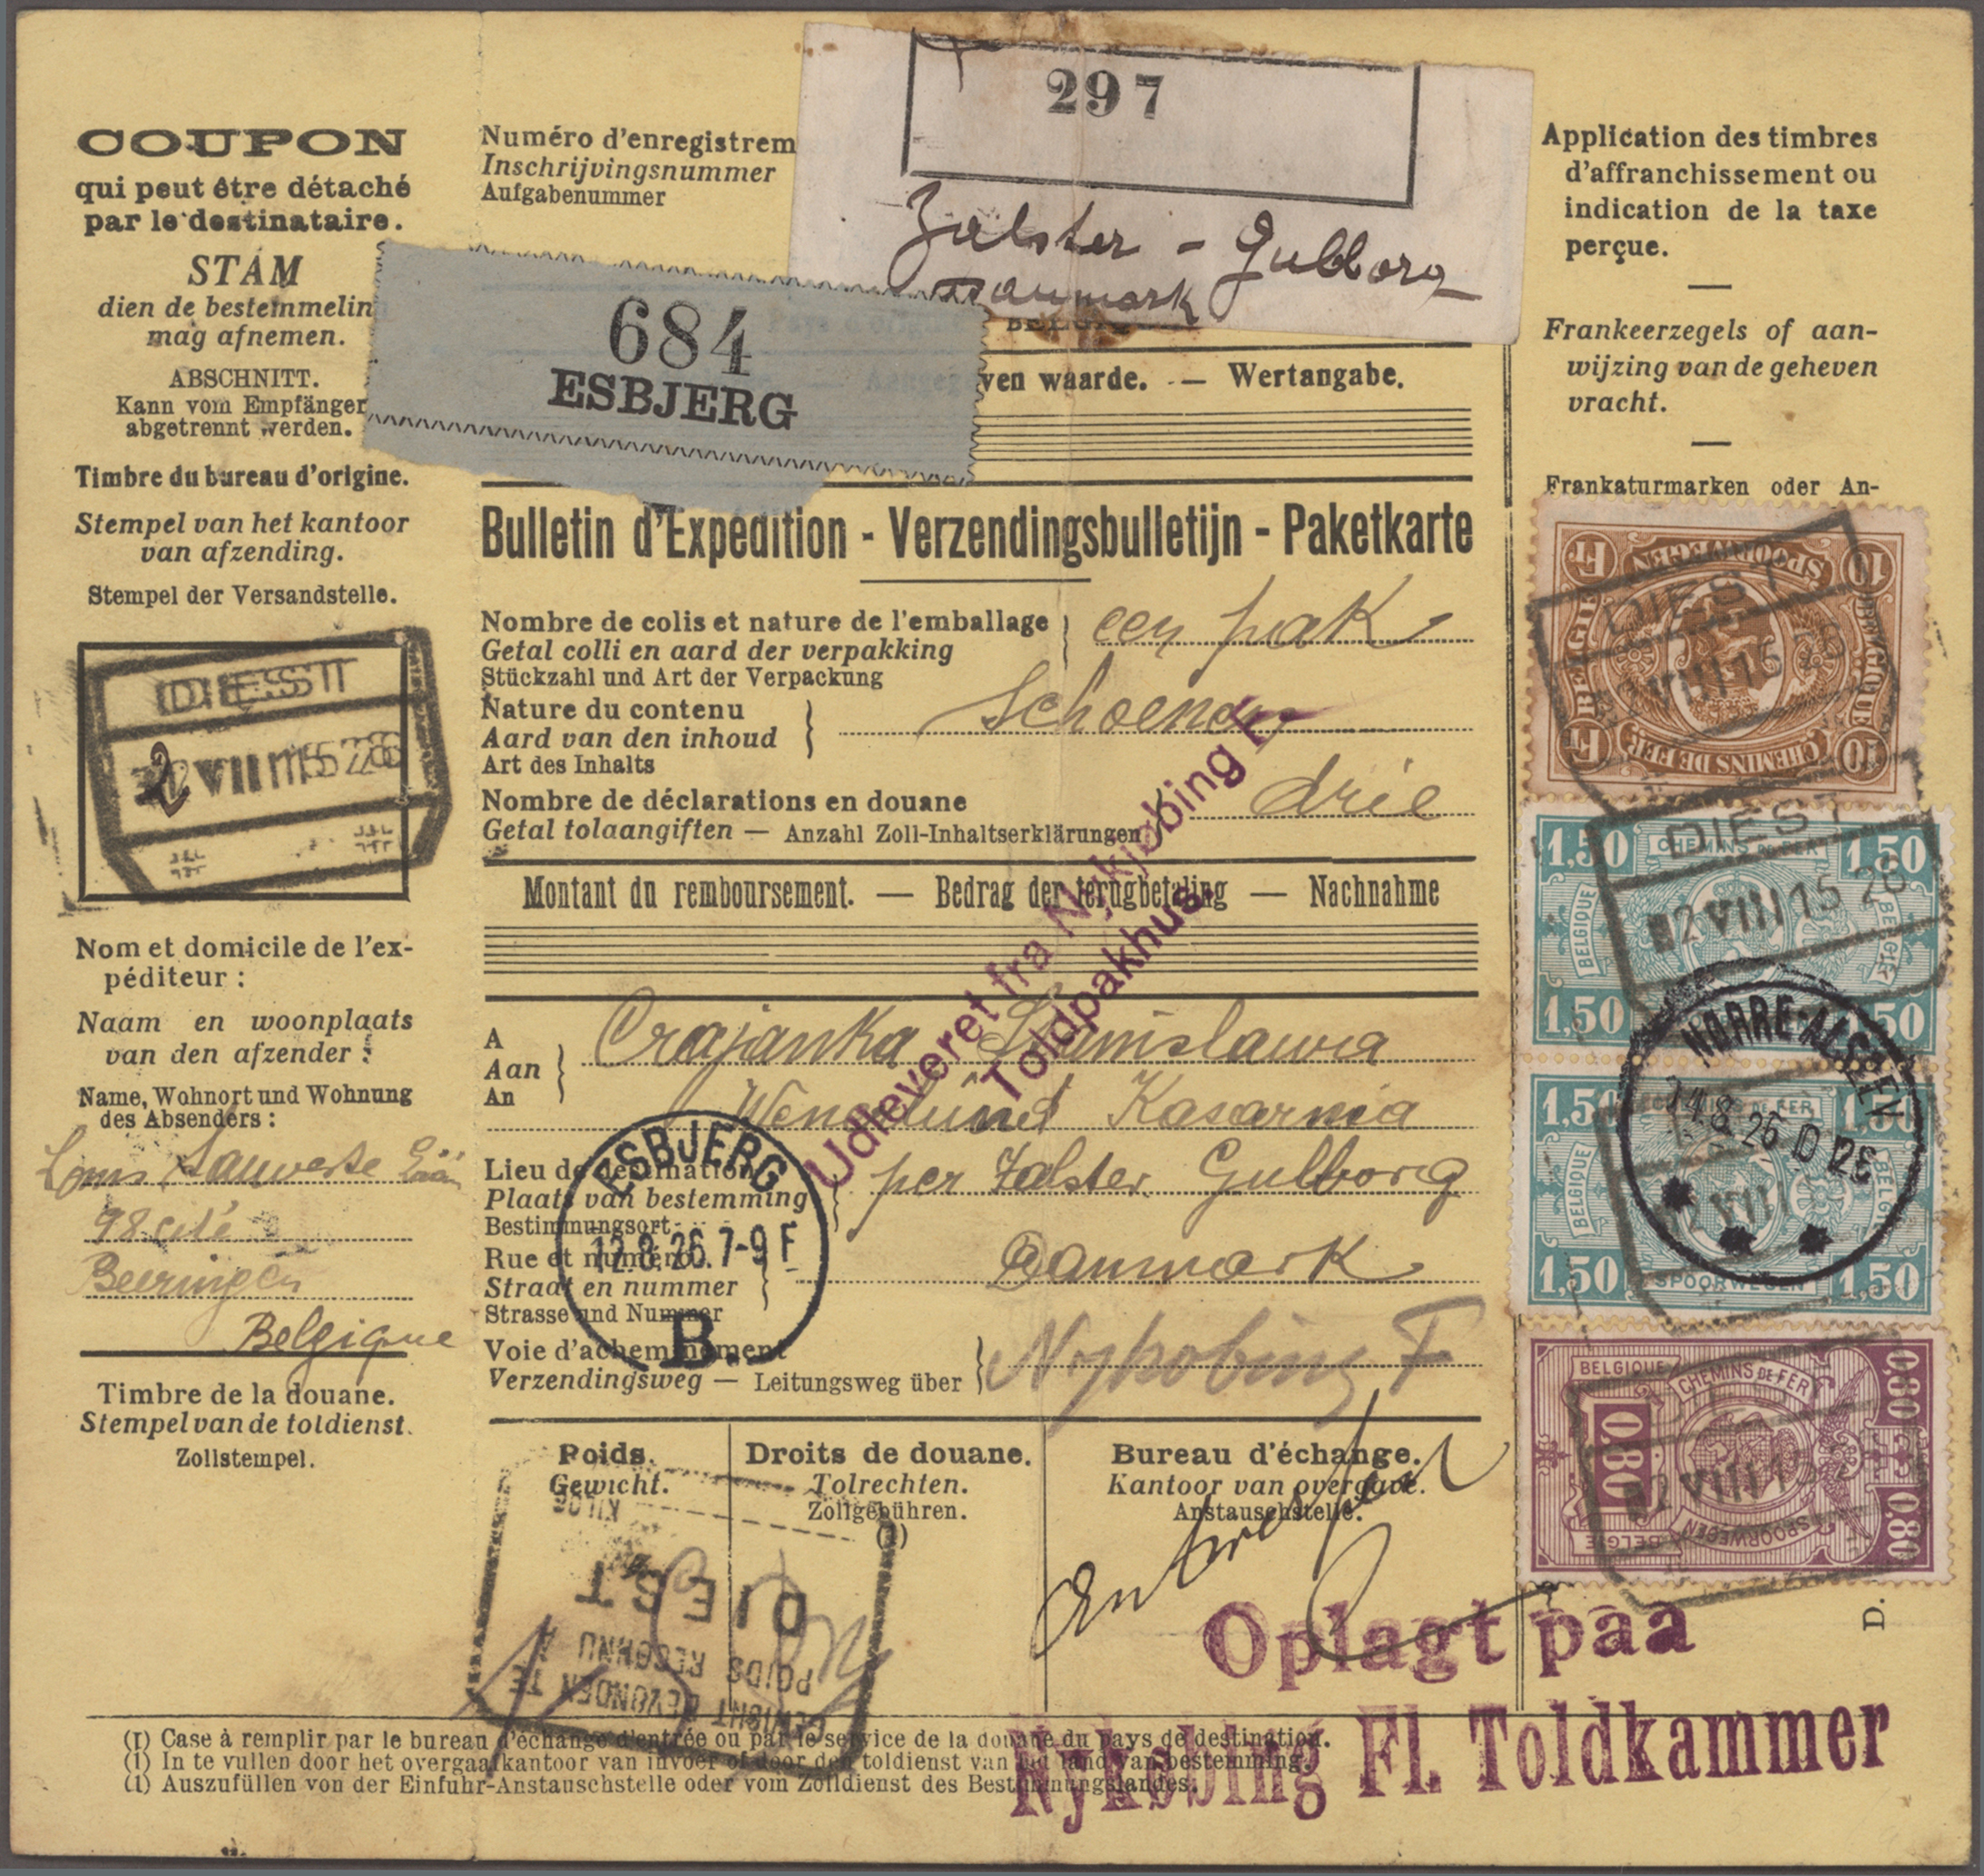 COUPON
qui peut être détaché
par le destinataire.
STAM
dien de bestemmelin
mag afnemen.
ABSCHNITT.
Kann vom Empfänger
abgetrennt werden.
Timbre du bureau d'origine.
Stempel van het kantoor
van afzending.
Stempel der Versandstelle.
DIEST
Nom et domicile de l'ex-
péditeur :
Naam en woonplaats
van den afzender :
Name, Wohnort und Wohnung
des Absenders :
98 cité
Beeringen
Belgique
Timbre de la douane.
Stempel van de toldienst.
Zollstempel.
Numéro d'enregistrem
Inschrijvingsnummer
Aufgabenummer
297
Zalster - Gulborg
Danmark
684
ESBJERG
ven waarde. — Wertangabe.
Bulletin d'Expédition - Verzendingsbulletijn - Paketkarte
Nombre de colis et nature de l'emballage
een pak
Getal colli en aard der verpakking
Stückzahl und Art der Verpackung
Nature du contenu
Schoenen
Aard van den inhoud
Art des Inhalts
Nombre de déclarations en douane
drie
Getal tolaangiften — Anzahl Zoll-Inhaltserklärungen
Montant du remboursement. — Bedrag der terugbetaling — Nachnahme
Udleveret fra Nykjøbing F.
Toldpakhus.
A
Aan
An
Crajanka Stanislawa
Kasarnia
Lieu de destination
Plaats van bestemming
Bestimmungsort
per Zalster Gulborg
Rue et numéro
Straat en nummer
Strasse und Nummer
Danmark
ESBJERG
12.8.26.7-9 F
B.
Voie d'acheminement
Verzendingsweg — Leitungsweg über
Nykobing F
Poids.
Gewicht.
Droits de douane.
Tolrechten.
Zollgebühren.
(1)
Bureau d'échange.
Kantoor van overgave.
Anstauschstelle.
KILOG
DIEST
POIDS RECONNU
GEWICHT BEVONDEN TE
(1) Case à remplir par le bureau d'échange d'entrée ou par le service de la douane du pays de destination.
(1) In te vullen door het overgaafkantoor van invoer of door den toldienst van het land van bestemming.
(1) Auszufüllen von der Einfuhr-Anstauschstelle oder vom Zolldienst des Bestimmungslandes.
Oplagt paa
Nykøbing Fl. Toldkammer
Application des timbres
d'affranchissement ou
indication de la taxe
perçue.
Frankeerzegels of aan-
wijzing van de geheven
vracht.
Frankaturmarken oder An-
10 SPOORWEGEN Fr
BELGIE BELGIQUE
10 CHEMINS DE FER Fr
DIEST
1,50 CHEMINS DE FER 1,50
BELGIQUE BELGIE
1,50 1,50
DIEST
2 VIII 15 26
NØRRE-ALSLEV
14.8.26 10-12 E
1,50 CHEMINS DE FER 1,50
BELGIQUE BELGIE
1,50 SPOORWEGEN 1,50
BELGIQUE CHEMINS DE FER 0,80
0,80
BELGIE SPOORWEGEN 0,80
2 VIII 15
D.